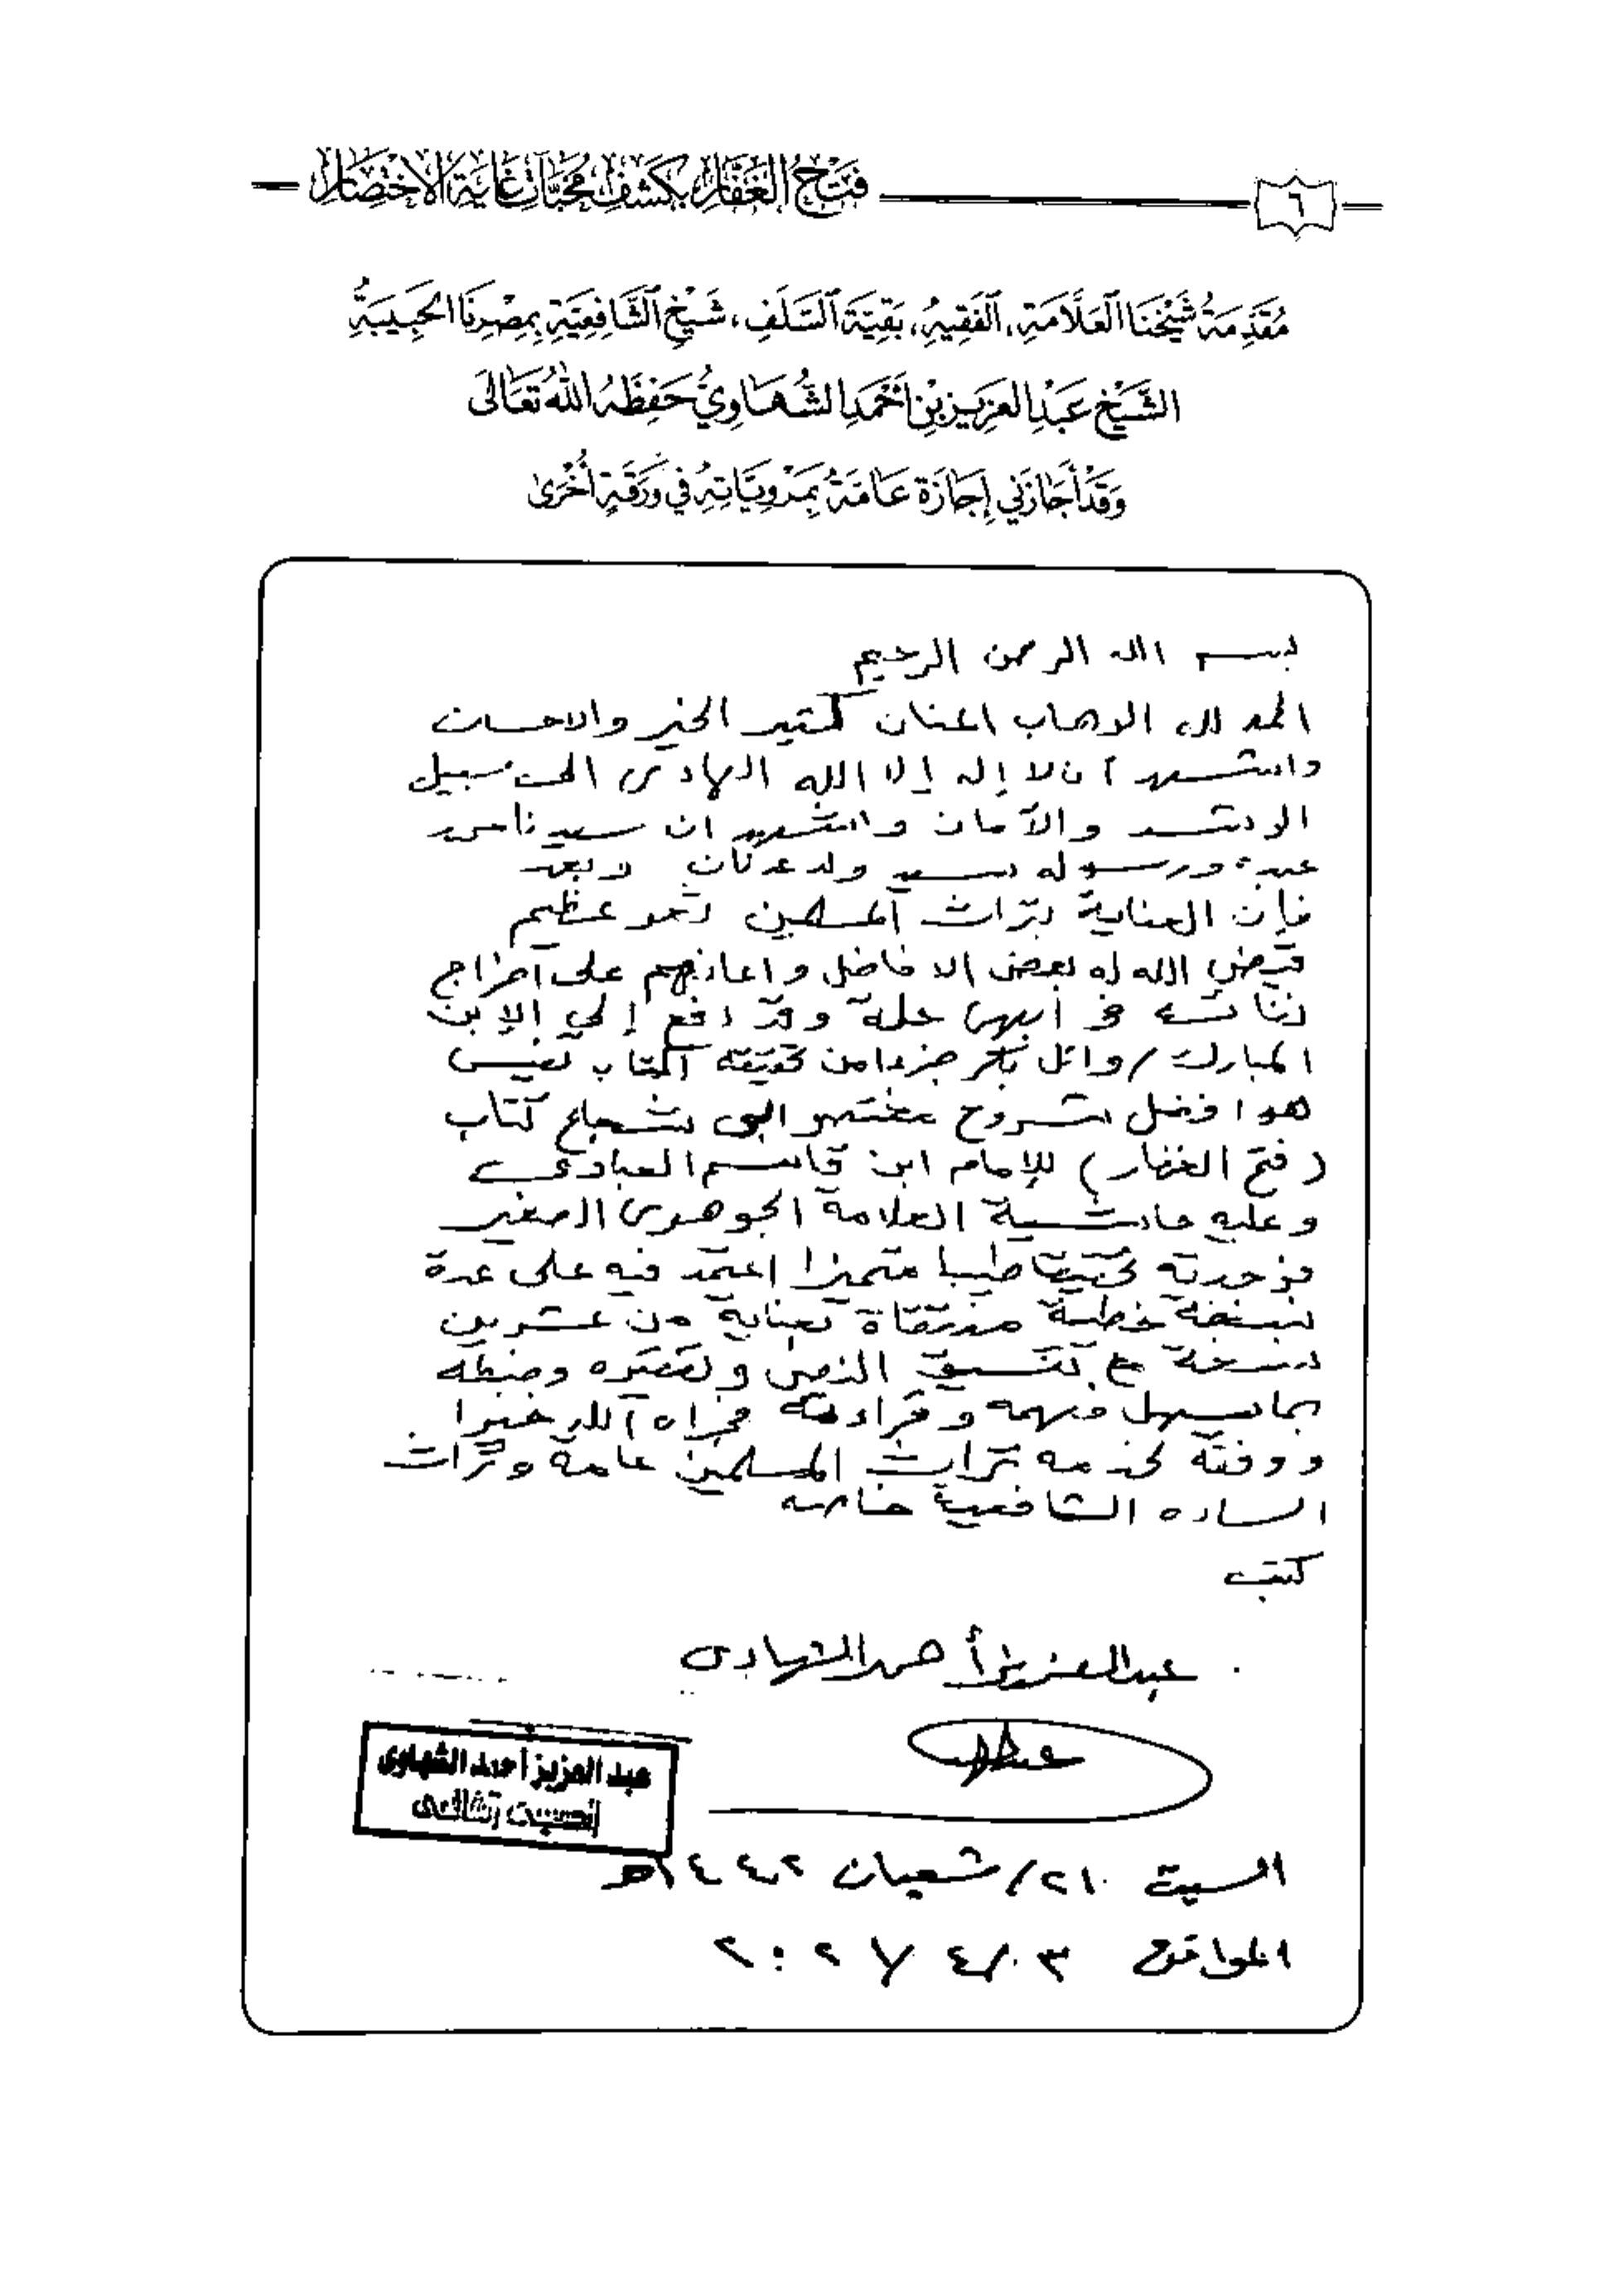 فَتْحُ الغَفَّارِ بِكَشْفِ مُخَبَّآتِ غَايَةِ الِاخْتِصَارِ
٦
مُقَدِّمَةُ شَيْخِنَا العَلَّامَةِ، الفَقِيهِ، بَقِيَّةِ السَّلَفِ، شَيْخِ الشَّافِعِيَّةِ بِمِصْرِنَا الحَبِيبَةِ
الشَّيْخِ عَبْدِ العَزِيزِ بْنِ أَحْمَدَ الشُّهَاوِيُّ حَفِظَهُ اللهُ تَعَالَى
وَقَدْ أَجَازَنِي إِجَازَةً عَامَّةً بِمَرْوِيَّاتِهِ فِي وَرَقَةٍ أُخْرَى
بسم الله الرحمن الرحيم
الحمد لله الوهاب المنان كثير الخير والاحسان
واشهد أن لا إله إلا الله الهادى الى سبيل
الرشد والأمان واشهد ان سيدنا محمد
عبده ورسوله سيد ولد عدنان وبعد
فإن العناية بتراث المسلمين عظيم
قيض الله له بعض الافاضل واعانهم على اخراج
فى أبهى حلة وقد دفع إلي الإبن
المبارك / وائل بكر جزءا من تحقيقه لكتاب نفيس
هو افضل شروح مختصر ابى شجاع كتاب
(فتح الغفار) للإمام ابن قاسم العبادى
وعليه حاشية العلامة الجوهرى الصغير
فوجدته تحقيقا طيبا متميزا اعتمد فيه على عدة
نسخة خطية منتقاة بعناية من عشرين
نسخة مع تنسيق النص وتفقيره وضبطه
بما يسهل فهمه وقراءته فجزاه الله خيرا
ووفقه لخدمه تراث المسلمين عامة وتراث
الساده الشافعية خاصه
كتب
عبد العزيز أحمد الشهاوى
عبد العزيز أحمد الشهاوى
الشافعى
السبت ٢١/ شعبان ١٤٤٢هـ
الموافق ٣/٤/